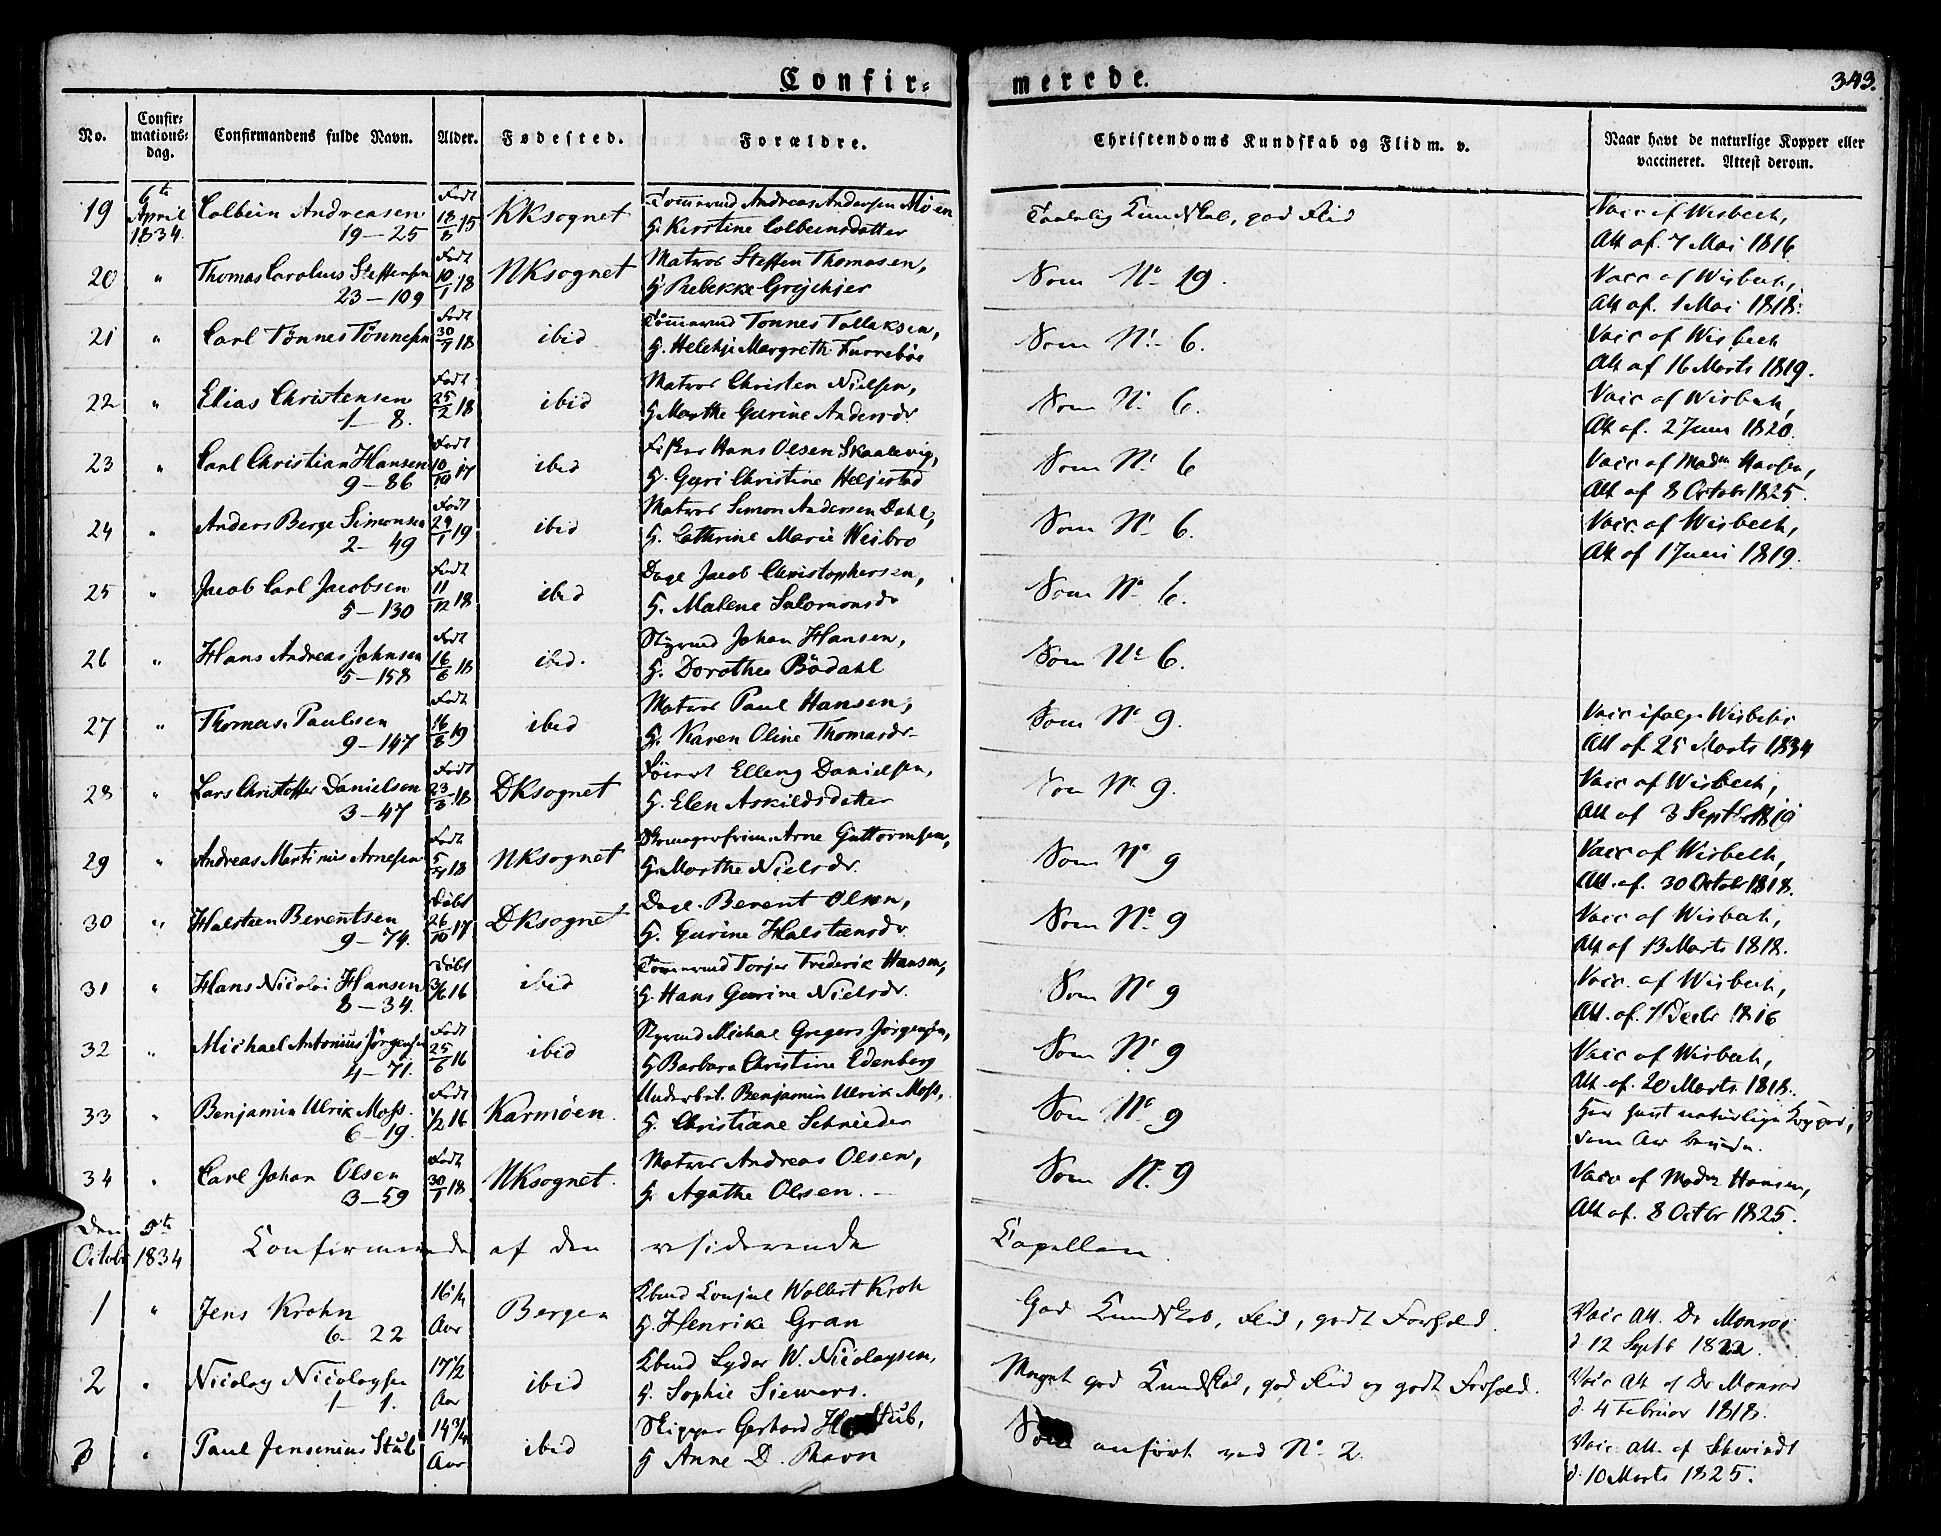 Confir=merede.
343.
No. Confir=mations=dag. Confirmandens fulde Navn. Alder. Fødested. Forældre. Christendoms Kundskab og Flid m. v. Naar havt de naturlige Kopper eller vaccineret. Attest derom.
19 6te April 1834. Colbein Andreasen 19-25 Født 18/8 15 KKsognet Tømmermd Andreas Andersen Möen H. Kirstine Colbeinsdatter Taalelig Kundskab, god Flid Vacc af Wisbech, Att af. 7 Mai 1816
20 " Thomas Carolus Steffensen 23-109 Født 10/1 18 NKsognet Matros Steffen Thomasen, H Rebekke Som No 19. Vacc af Wisbech, Att af. 1 Mai 1818.
21 " Carl Tønnes Tønnesen Født 30/7 18 ibid Tømmermd Tønnes Tollaksen, H. Margreth Furreböe Som No 6. Vacc af Wisbech Att af 16 Marts 1819.
22 " Elias Christensen 1-8. Født 25/2 18 ibid Matros Christen Nielsen, H Marthe Gurine Andersdr Som No 6. Vacc af Wisbech, Att af. 2 Juni 1820.
23 " Carl Christian Hansen 9-86 Født 10/10 17 ibid Fisker Hans Olsen Skaalevig, H. Guri Christine Heljestad Som No 6 Vacc af Madm Hansen, Att af 8 Octobr 1825.
24 " Anders Berge Simonsen 2-49 Født 29/1 19 ibid Matros Simon Andersen Dahl, H. Cathrine Marie Weibro Som No 6. Vacc af Wisbech, Att af 1 Juni 1819.
25 " Jacob Carl Jacobsen 5-130 Født 11/12 18 ibid Dagl Jacob Christophersen, H. Malene Salomonsdr Som No 6.
26 " Hans Andreas Johnsen 5-158 Født 16/6 18 ibid. Styrmd Johan Hansen, H. Dorothea Bödahl Som No 6.
27 " Thomas Paulsen 9-147 Født 16/8 19 ibid Matros Paul Hansen, H. Karen Oline Thomasdr Som No 9. Vacc ifølge Wisbechs Att af. 25 Marts 1834
28 " Lars Christoffer Danielsen 3-47 Født 23/3 18 DKsognet Elleng Danielsen, H. Elen Askildsdatter Som No 9. Vacc af Wisbech, Att af 3 Septbr 1819
29 " Andreas Martinus Arnesen Født 18 NKsognet Arne Guttormsen, H. Marthe Nielsdr. Som No 9 Vacc af Wisbech, Att. af. 30 Octobr 1818.
30 " Halsteen Berentsen 9-74. Døbt 26/10 17 DKsognet Dagl. Berent Olsen, H. Gurine Halsteensdr. Som No. 9 Vacc af Wisbech, Att af 13 Marts 1818.
31 " Hans Nicolai Hansen 8-34. Døbt 3/6 16 ibid Tømmermd Torjer Frederik Hansen, H. Hans Gurine Nielsdr. Som No 9 Vacc. af Wisbech, Att. af. 7 Decbr 1816
32 " Michael Antonius Jörgensen 4-71. Født 25/6 16 ibid Styrmd Michal Gregers Jörgensen, H Barbara Christine Edenberg Som No 9 Vacc af Wisbech, Att af. 20 Marts 1818.
33 " Benjamin Ulrik Moss. 6-19. Født 1/2 16 Karmöen. Benjamin Ulrik Moss, H. Christiane Schnieder Som No 9 Har havt naturlige Kopper,
34 " Carl Johan Olsen 3-59 Født 30/1 18 NKsognet. Matros Andreas Olsen, H. Agathe Olsen. Som No. 9 Vacc af Madm Hansen, Att af. 8 Octbr 1825.
Den 5te Octobr 1834 Confirmerede af den residerende Capellan.
1 " Jens Krohn 6-22 16 1/4 Aar Bergen Kbmd Consul Wollert Kroh H. Henrike Gran God Kundskab, Flid, godt Forhold. Vacc Att. Dr Monrad d. 12 Septb 1822.
2 " Nicolay Nicolaysen 1-1. 17 1/2 Aar ibid Kbmd Lyder W. Nicolaysen, H. Sophie Siewers. Meget god Kundskab, god Flid og godt Forhold. Vacc Att af Dr Monrad d. 4 Februar 1818.
3 " Paul Jensenius Stub 14 3/4 Aar ibid Skipper Gerhard Stub, H Anne D. Ravn Som anført ved No 2. Vacc. att. af Schwindt d. 10 Marts 1825.